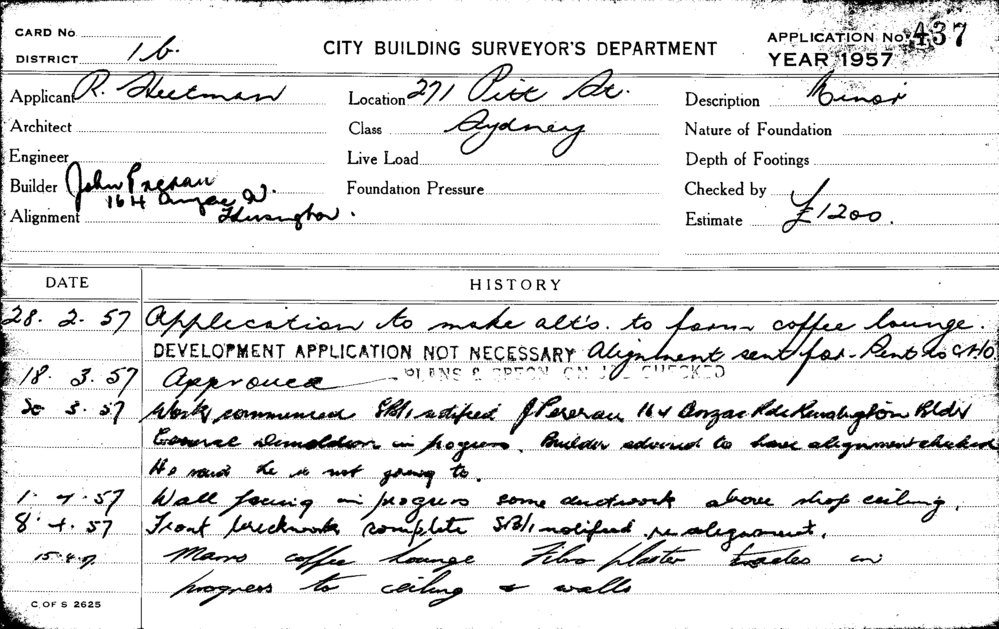 CARD No
DISTRICT 1b.
CITY BUILDING SURVEYOR'S DEPARTMENT
APPLICATION No. 437
YEAR 1957
Applicant R.
Location 271 Pitt St.
Description Minor
Architect
Class Sydney
Nature of Foundation
Engineer
Live Load
Depth of Footings
Builder John
164 Anzac
Foundation Pressure
Checked by
Alignment Kensington.
Estimate £1200.
DATE
HISTORY
28. 2. 57 Application to make alt's. to form coffee lounge.
DEVELOPMENT APPLICATION NOT NECESSARY Alignment sent for
PLANS & SPECN ON JOB CHECKED
18. 3. 57 Approved
3. 57 Work commenced SB/1 notified J 164 Anzac Pde Kensington Bldr
General demolition in progress. Builder advised to have alignment checked
He said he is not going to.
1. 4. 57 Wall facing in progress some ductwork above shop ceiling.
8. 4. 57 Front brickwork complete SB/1 notified re alignment.
15.4.57 coffee lounge Fibro plaster trades in
progress to ceiling & walls
C OF S 2625